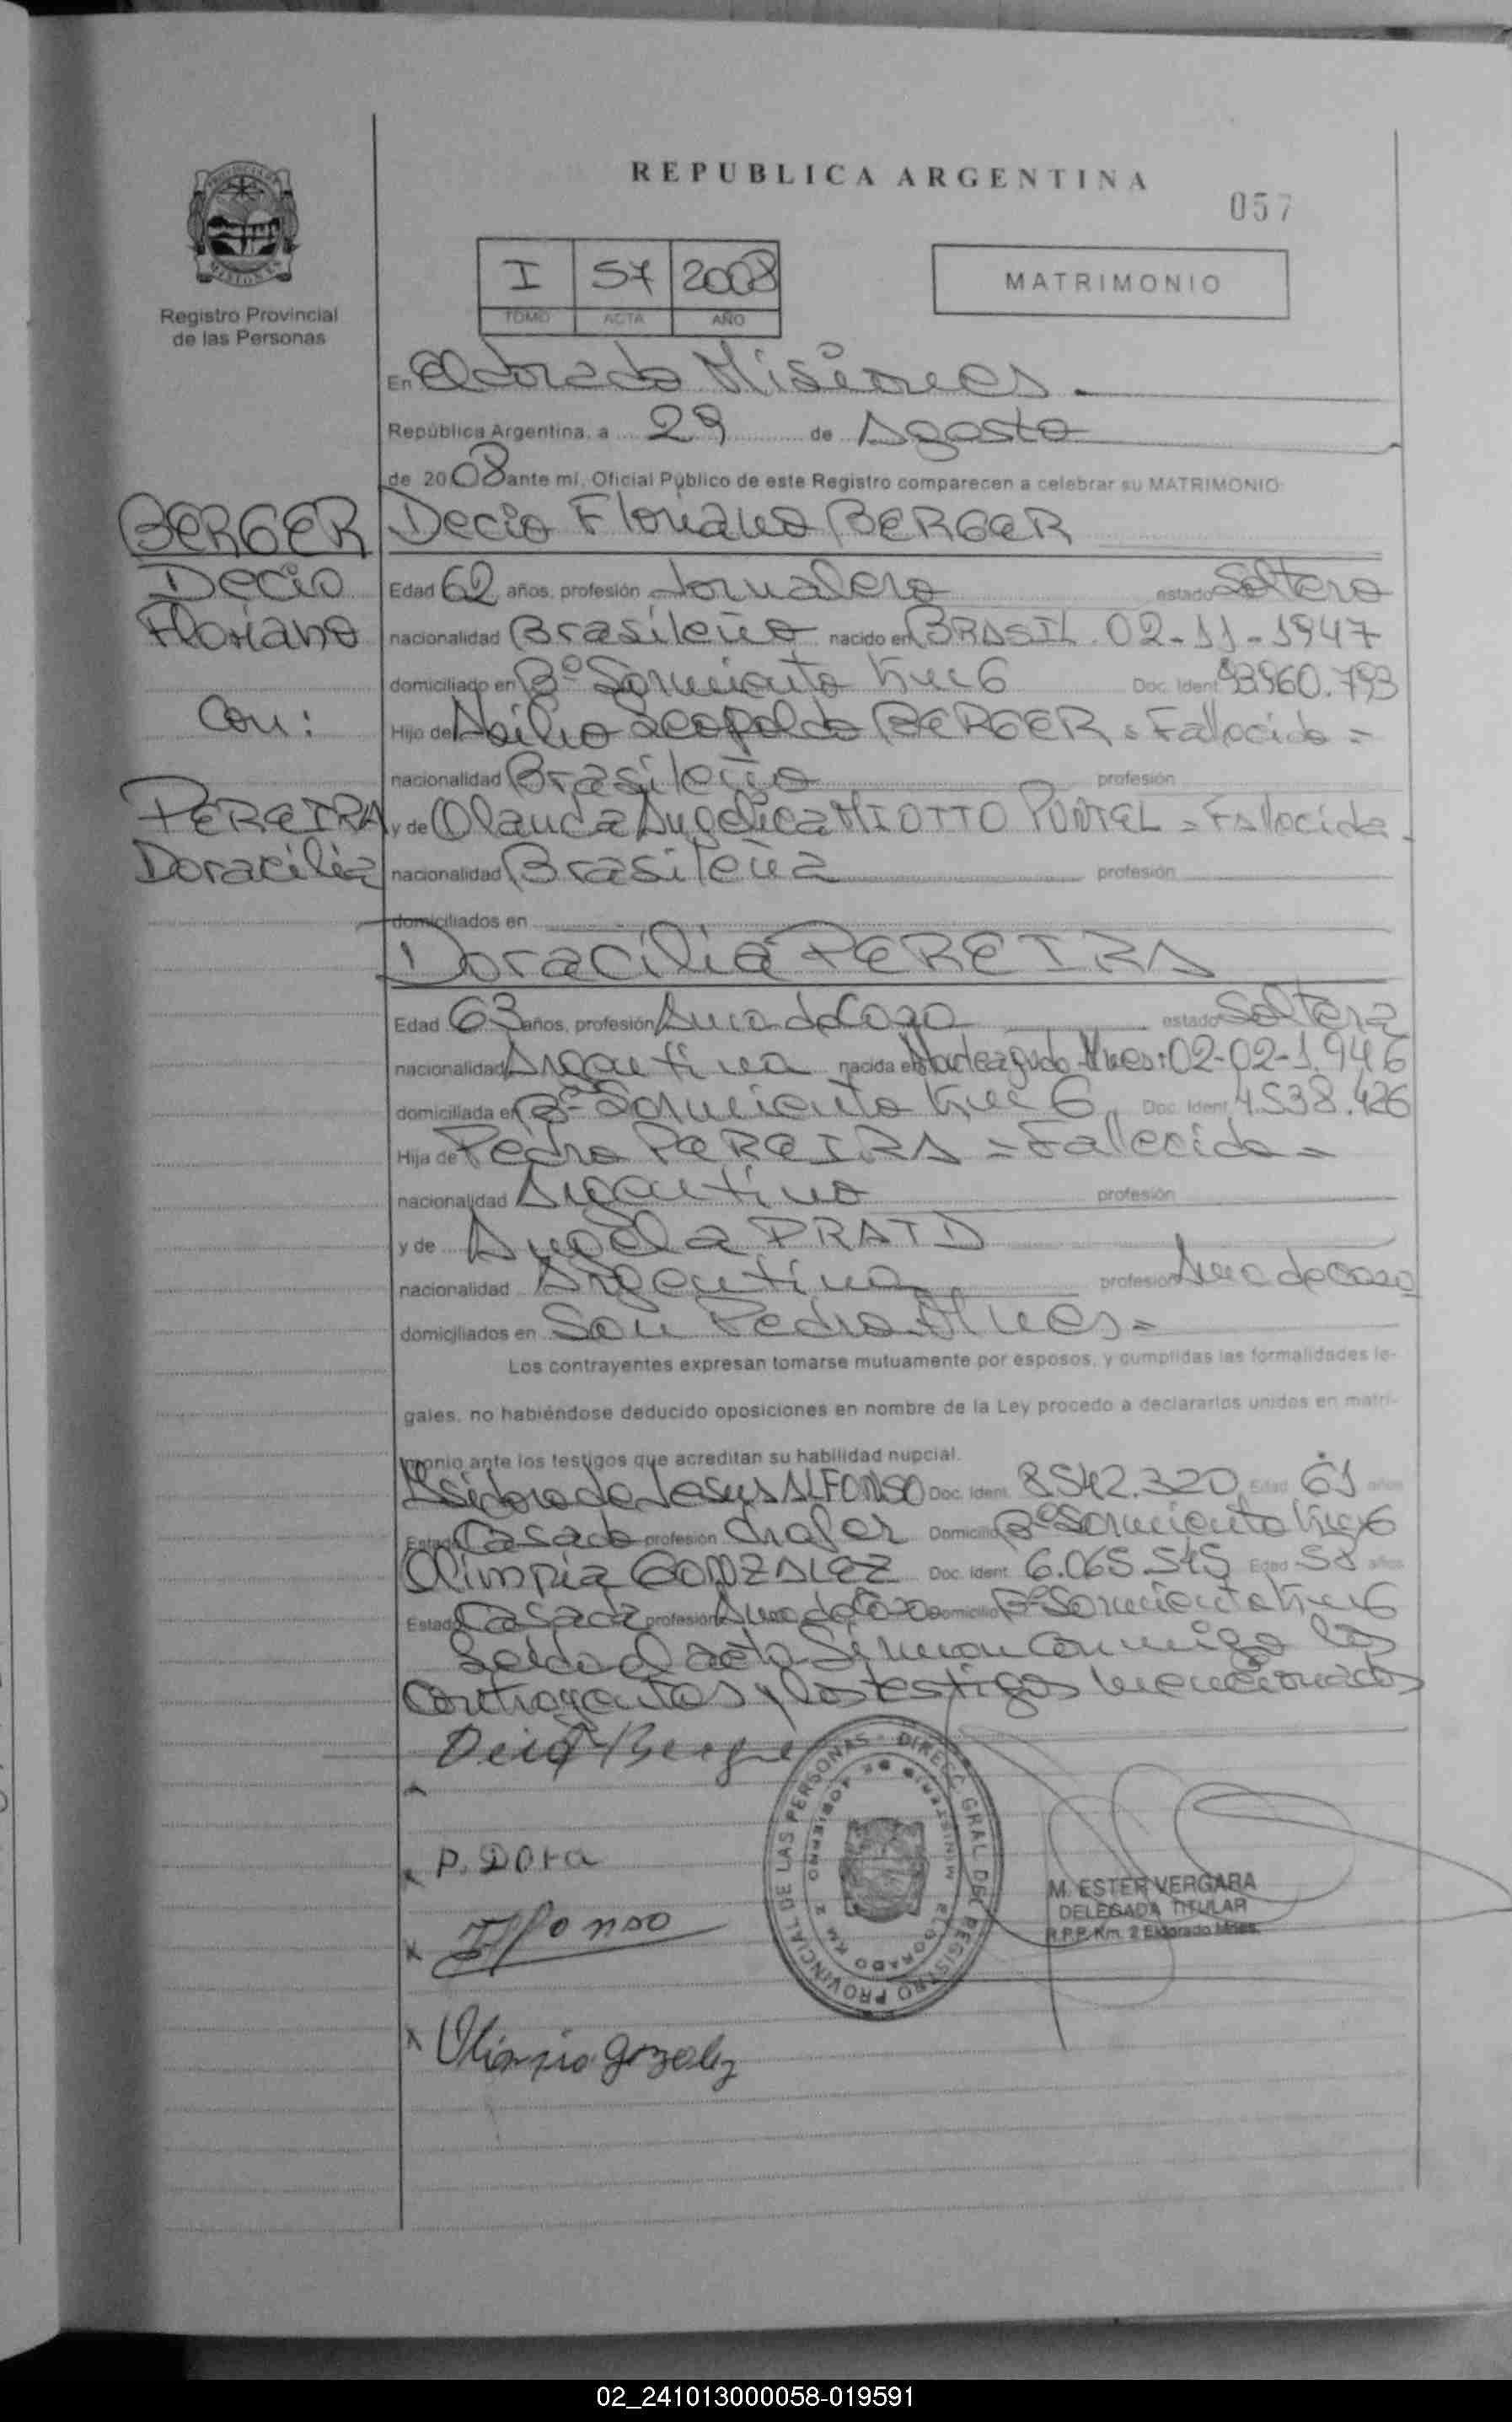 REPUBLICA ARGENTINA
057
I 57 2008
TOMO ACTA AÑO
MATRIMONIO
Registro Provincial
de las Personas
En Eldorado Misiones
República Argentina, a 29 de Agosto
de 2008 ante mi, Oficial Público de este Registro comparecen a celebrar su MATRIMONIO:
BERGER
Decio
Floriano
Con:
PEREIRA
Doracilia
Decio Floriano BERGER
Edad 62 años, profesión Jornalero estado Soltero
nacionalidad Brasileño nacido en BRASIL 02-11-1947
domiciliado en Bº Sarmiento km 6 Doc. Ident. 93960.793
Hijo de Leopoldo BERGER = Fallecido =
nacionalidad Brasileño profesión
y de Olanda Angelica MIOTTO PUNTEL = Fallecida
nacionalidad Brasileña profesión
domiciliados en
Doracilia PEREIRA
Edad 63 años, profesión Ama de Casa estado Soltera
nacionalidad Argentina nacida en Mnes: 02-02-1.946
domiciliada en Bº Sarmiento km 6 Doc. Ident. 4.538.426
Hija de Pedro PEREIRA = Fallecido =
nacionalidad Argentino profesión
y de Angela PRATD
nacionalidad Argentina profesión Ama de Casa
domiciliados en San Pedro Mnes =
Los contrayentes expresan tomarse mutuamente por esposos, y cumplidas las formalidades le-
gales, no habiéndose deducido oposiciones en nombre de la Ley procedo a declararlos unidos en matri-
monio ante los testigos que acreditan su habilidad nupcial.
Isidoro de Jesus ALFONSO Doc. Ident. 8.542.320 Edad 61 años
Estado Casado profesión Chofer Domicilio Bº Sarmiento km 6
Olimpia GONZALEZ Doc. Ident. 6.065.545 Edad 58 años
Estado Casada profesión Ama de Casa Domicilio Bº Sarmiento km 6
Leida el acta Firman conmigo los
Contrayentes y los testigos mencionados
P. Dora
Alfonso
Olimpia gonzalez
DIRECC. GRAL. DEL REGISTRO PROVINCIAL DE LAS PERSONAS
MINISTERIO DE GOBIERNO
ELDORADO KM 2
M. ESTER VERGARA
DELEGADA TITULAR
R.P.P. Km. 2 Eldorado Mnes.
02_241013000058-019591